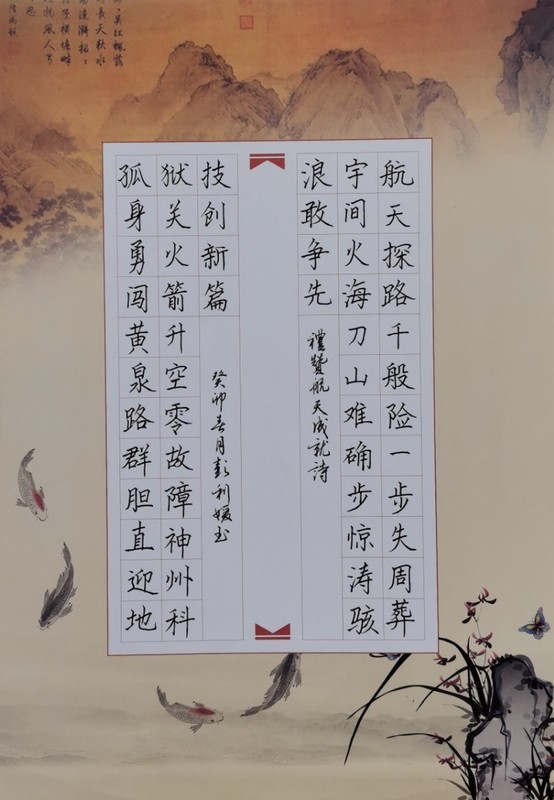 航天探路千般险一步失周葬
宇间火海刀山难确步惊涛骇
浪敢争先
禮贊航天成就詩
孤身勇闯黄泉路群胆直迎地
狱关火箭升空零故障神州科
技创新篇
癸卯春月彭利媛书